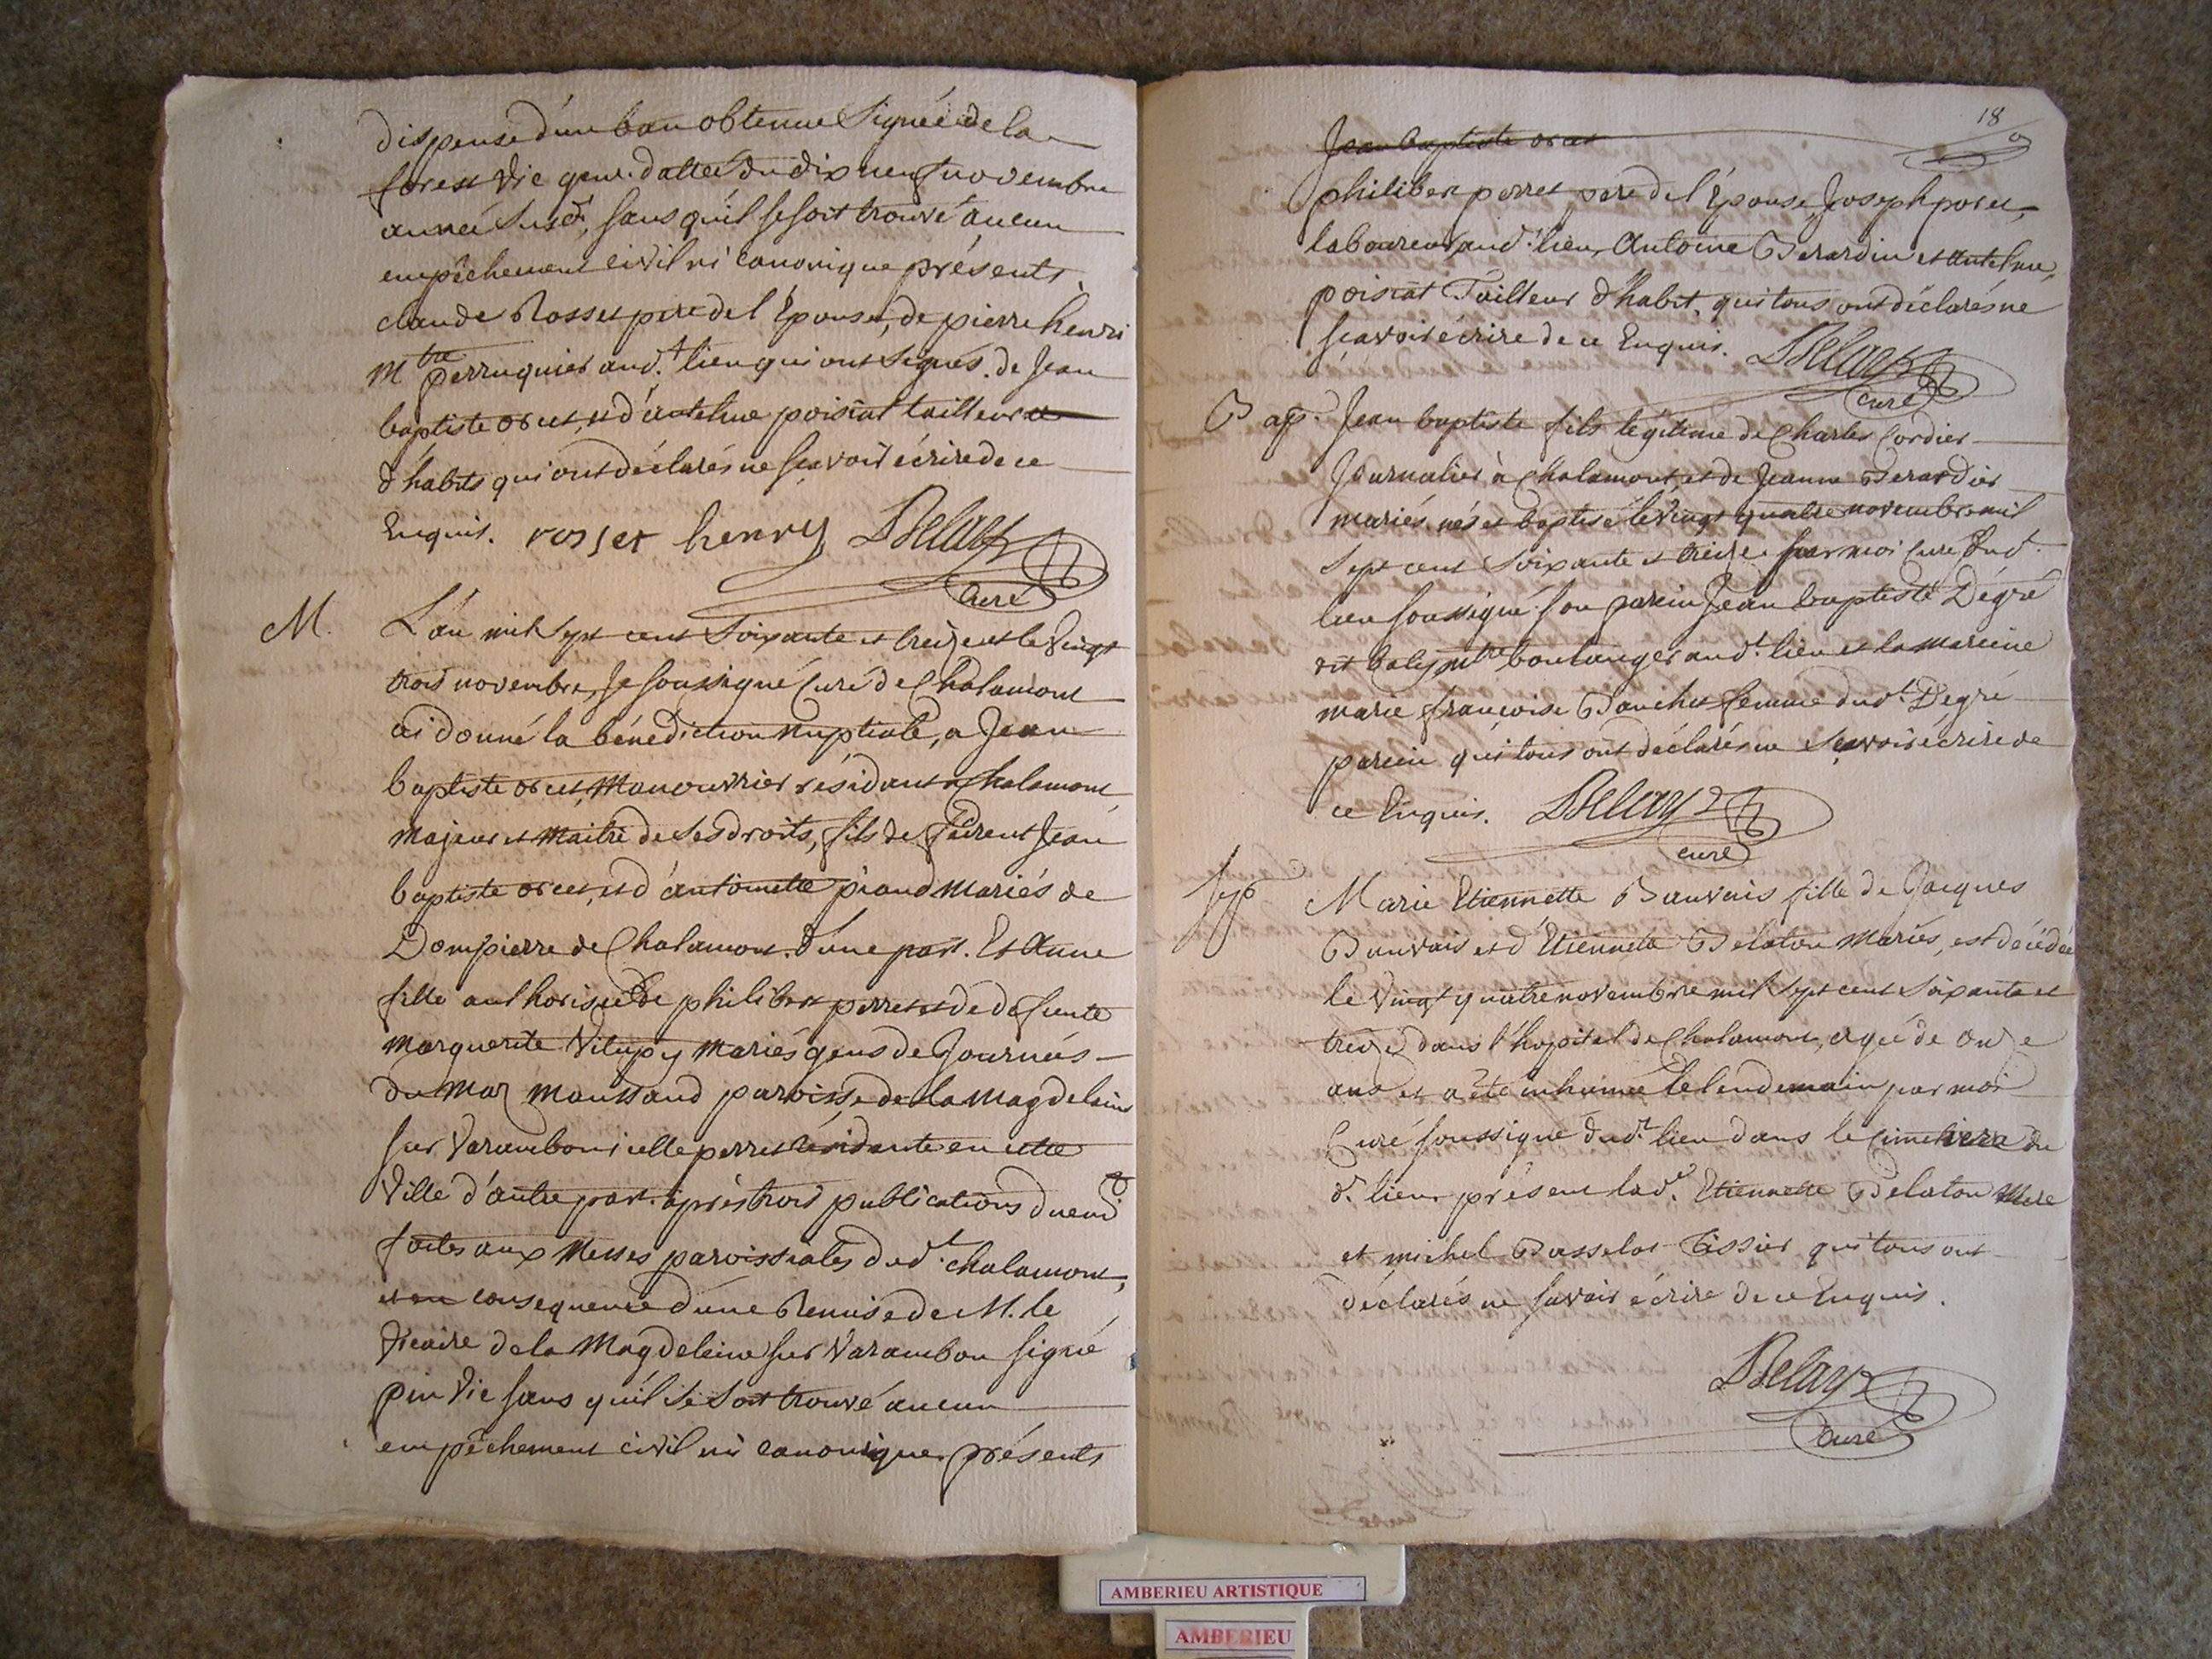 dispense d'un ban obtenue Signée de la
forest vic. gener. datteé du dix neuf novembre
année Susd. sans qu'il se soit trouvé aucun
empêchement civil ni canonique présents
claude Rosset pere de l'Épouse, de pierre henri
mtre perruquier aud.t lieu qui ont signés. de Jean
baptiste orcet, et d'antelme poisiat tailleur
d'habits qui ont déclarés ne sçavoir écrire de ce
Enquis. rosset henry Delay
Curé
M. L'an mil sept cent soixante et treize et le vingt
trois novembre, Je soussigné Curé de Chalamont
ai donné la bénédiction nuptiale, a Jean
baptiste orcet, Manouvrier résidant a Chalamont
majeur et maitre de ses droits, fils de feu Jean
baptiste orcet, et d'antoinette piaud mariés de
Dompierre de Chalamont. d'une part. Et Anne
fille authorisée de philibert perret et de defunte
marguerite mariés gens de Journées
du Maz maussaud paroisse de la Magdeleine
sur Varambon icelle perret résidante en cette
Ville d'autre part. après trois publications
faites aux Messes paroissiales dud.t chalamont,
et en consequence d'une Remise de M. le
vicaire de la Magdeleine sur Varambon signé
pin vic sans qu'il se soit trouvé aucun
empêchement civil ni canonique présents
18
Jean baptiste orcet
philibert perret père de l'Épouse, Joseph
laboureur aud.t lieu, Antoine Berardin et antelme
poisiat Tailleur d'habit, qui tous ont déclarés ne
sçavoir écrire de ce Enquis. Delay
curé
Bap. Jean baptiste fils légitime de Charles Cordier
Journalier à Chalamont, et de Jeanne Berardier
mariés, nés et baptisé le vingt quatre novembre mil
sept cent soixante et treize par moi Curé dud.t
lieu soussigné. son parein Jean baptiste Dégré
dit mtre boulanger aud.t lieu et la mareine
marie françoise femme dud.t Degré
parein qui tous ont déclarés ne sçavoir écrire de
ce Enquis. Delay
curé
Sep Marie Etiennette Bauvais fille de Jacques
Bauvais et d'Etiennette Belaton Mariés, est décédée
le vingt quatre novembre mil sept cent soixante et
treize dans l'hopital de Chalamont, agée de onze
ans et a été inhumée le lendemain par moi
Curé soussigné dud.t lieu dans le Cimetiere du
d. lieu présent lad.e Etiennette Belaton Mere
et michel Basselot Tissier qui tous ont
déclarés ne savoir écrire de ce Enquis.
Delay
Curé
AMBERIEU ARTISTIQUE
AMBERIEU